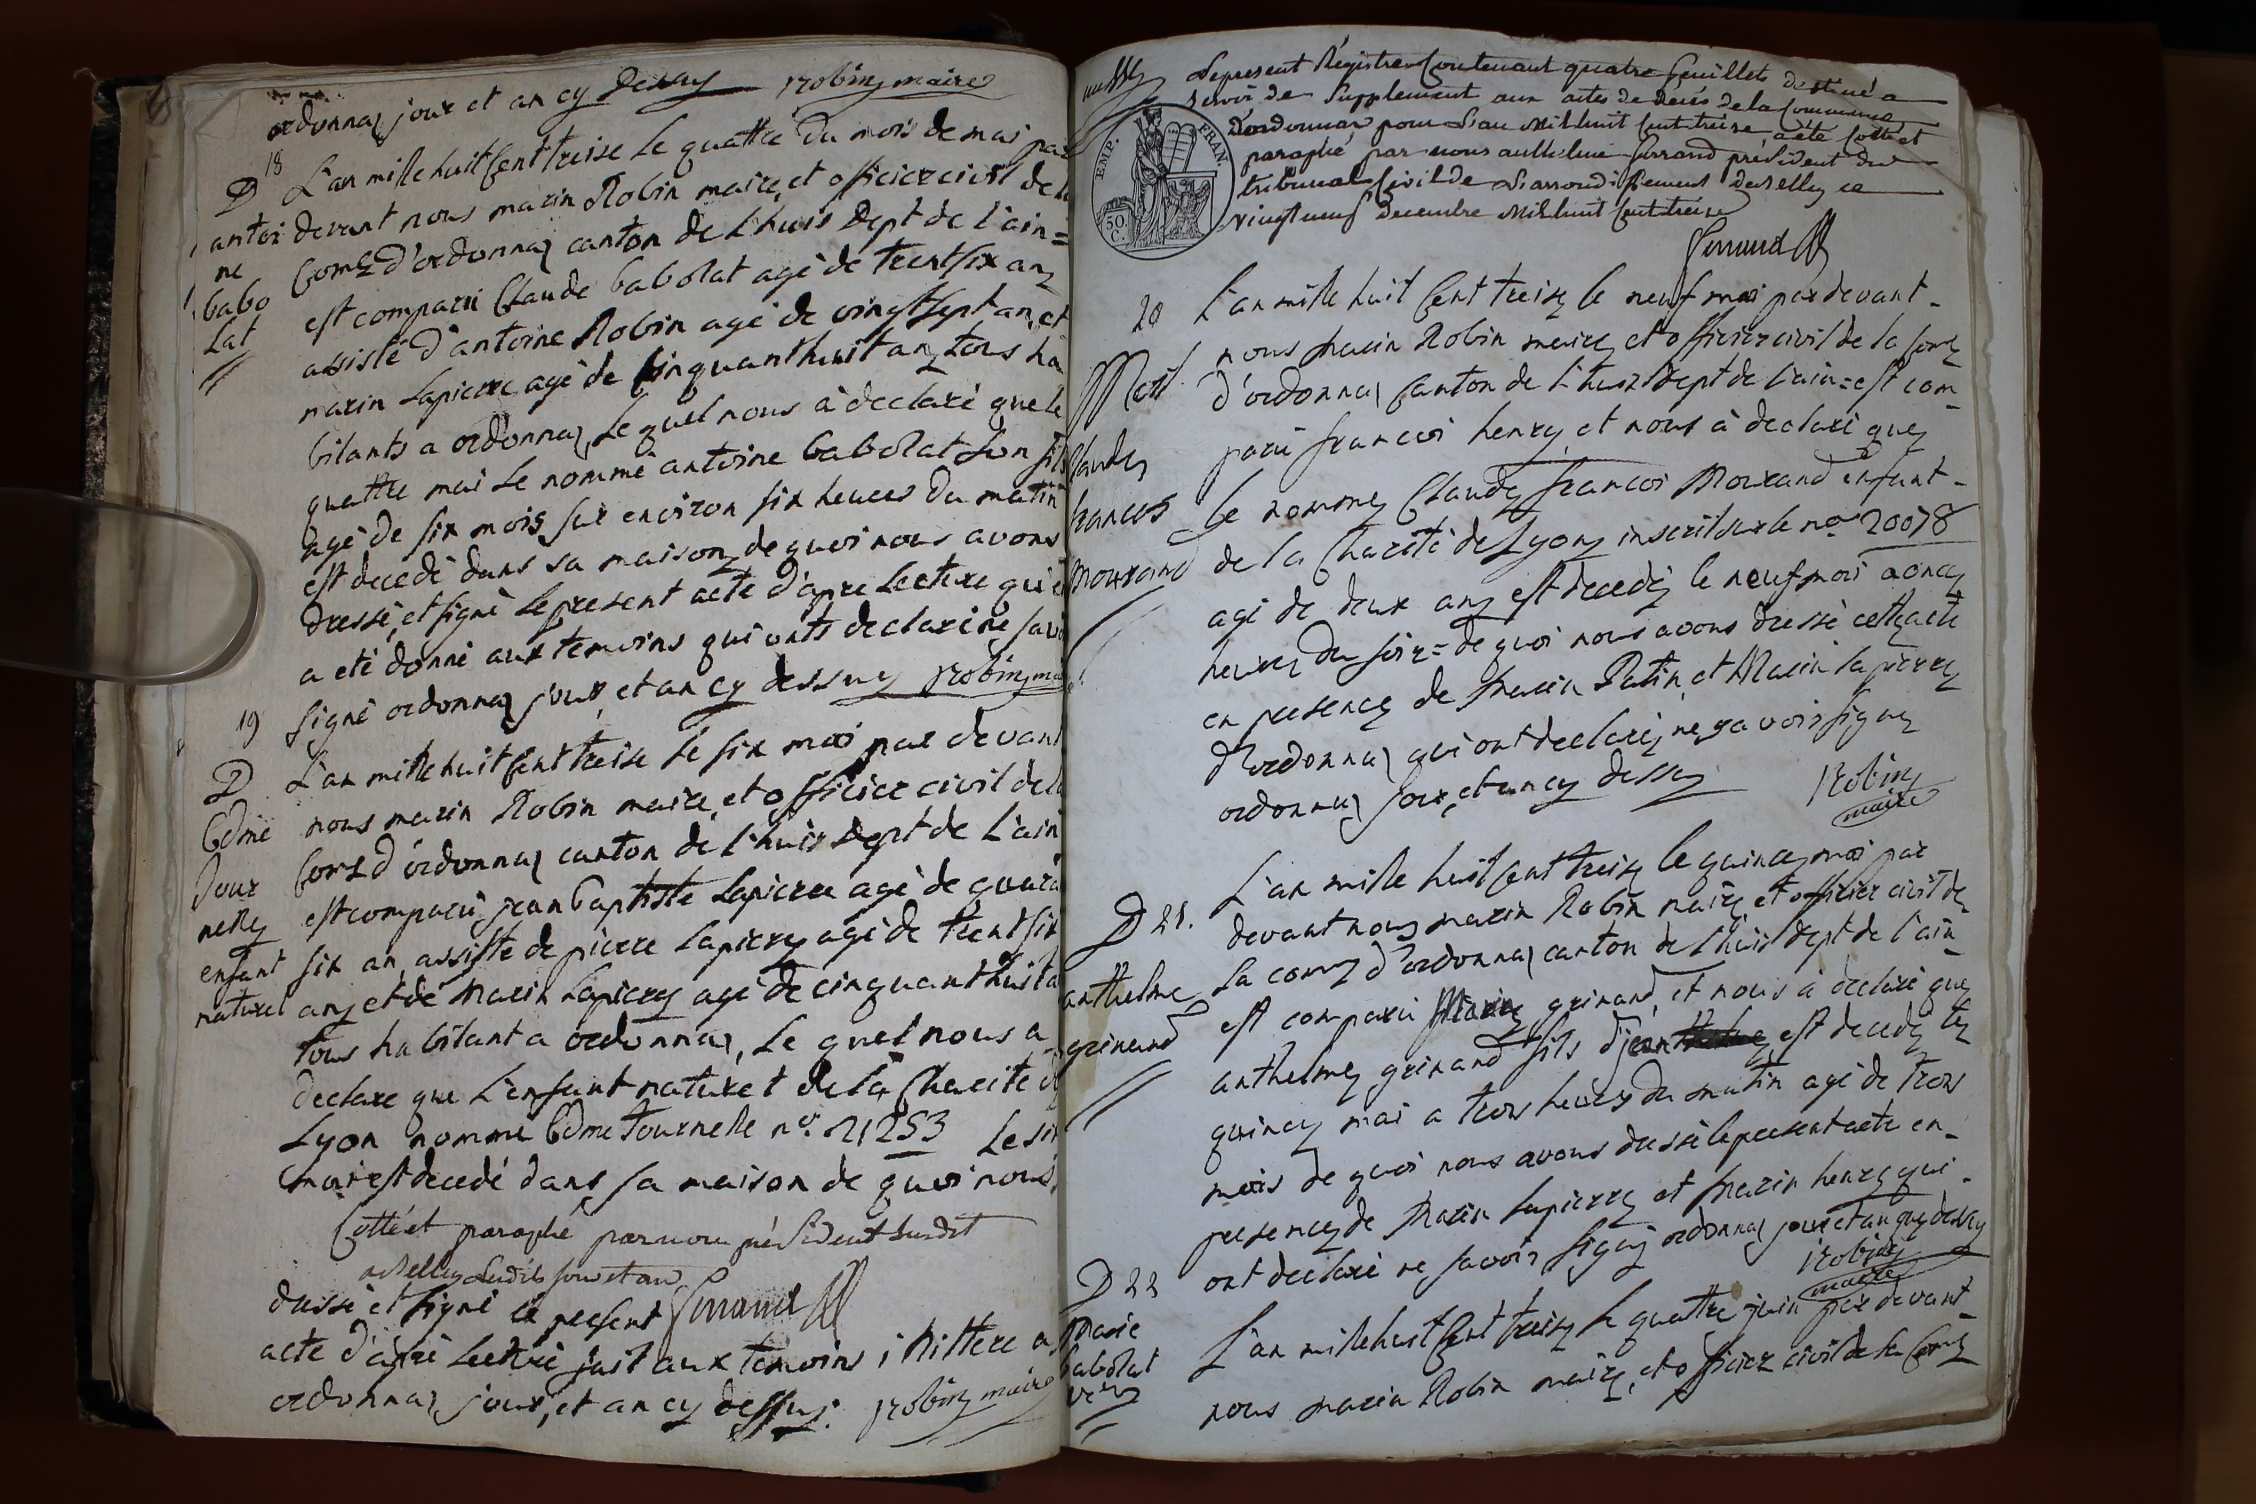 ordonnaz jour et an cy dessus robin maire
18
D
antoi
ne
babo
lat
L'an mille huit cent treise le quattre du mois de mai par
devant nous marin Robin maire, et officier civil de la
d'ordonnaz canton de l'huis dept de l'ain =
est comparu Claude babolat agé de trent six anz
assisté d'antoine Robin agé de vingt sept an, et
marin Lapierre agé de cinquant huit anz tous ha
bitants a ordonnaz, Lequel nous à declaré que le
quattre mai le nommé antoine babolat son fils
agé de six mois sur environ six heures du matin
est decedé dans sa maison, de quoi nous avons
dressé, et signé Le present acte d'apre Lecture qui
a eté donné aux temoins qui onts declaré ne
signé ordonnaz jour, et an cy dessus robin
19
D
Jour
nelle
enfant
naturel
L'an mille huit cent treise le six mai par devant
nous marin Robin maire, et officier civil de
d'ordonnaz canton de l'huis dept de L'ain
est comparu jean baptiste Lapierre agé de
six an, assiste de pierre Lapierre agé de trent six
anz et de Marin Lapierre agé de cinquant huit a
tous habitant a ordonnaz, Le quel nous a
declare que L'enfant naturel de la Charité
Lyon nomme Tournelle no. 21253 Le six
mai est decedé dans sa maison de quoi nous
Cotté et paraphé par nous président susdit
a Belley Lesdits jour et an
dressé et signé le present
acte d'apré Lecture fait aux temoins
ordonnaz jour, et an cy dessus. robin maire
Le present Régistre Contenant quatre feuillets destiné a
servir de Supplement aux actes de décès de la Commune
D'ordonnaz pour L'an Mil huit Cent treize, a été Cotté et
paraphé par nous président du
tribunal Civil de L'arrondissement de Belley ce
vingt neuf decembre Mil huit Cent treize
EMP. FRAN.
50
C.
20
Mort
Claude
francois
Mourand
L'an mille huit cent treize le neuf mai par devant -
nous marin Robin maire, et officier civil de la
d'ordonnaz canton de l'huis dept de l'ain = est com-
paru francois henry, et nous à declaré que
Le nomme Claude francois Mourand enfant -
de la Charité de Lyon inscrit sur le no 20078
agé de deux anz est decedé le neuf mai a onze
heures du soir = de quoi nous avons dressé cette acte
en presence de Marin Patin, et Marin Lapierre
D'ordonnaz qui ont declaré ne savoir signe
ordonnaz jour, et an cy dessus
Robin
maire
D 21.
anthelme
grinand
L'an mille huit cent treize le quinze mai par
devant nous marin Robin maire et officier civil de
La d'ordonnaz canton de l'huis dept de l'ain -
est comparu grinand, et nous à declaré que
anthelme grinand fils d'jean est decedé le
quinze mai a trois heures du matin agé de trois
mois de quoi nous avons dressé le present acte en -
presence de Marin Lapierre et Marin henry qui -
ont declaré ne savoir signe ordonnaz jour et an que dessus
Robin
maire
D 22
Marie
babolat
L'an mille huit cent treize le quattre juin par devant -
nous marin Robin maire, et officier civil de la